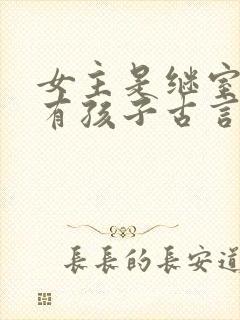 女主是继室
有孩子古言
長長的長安道